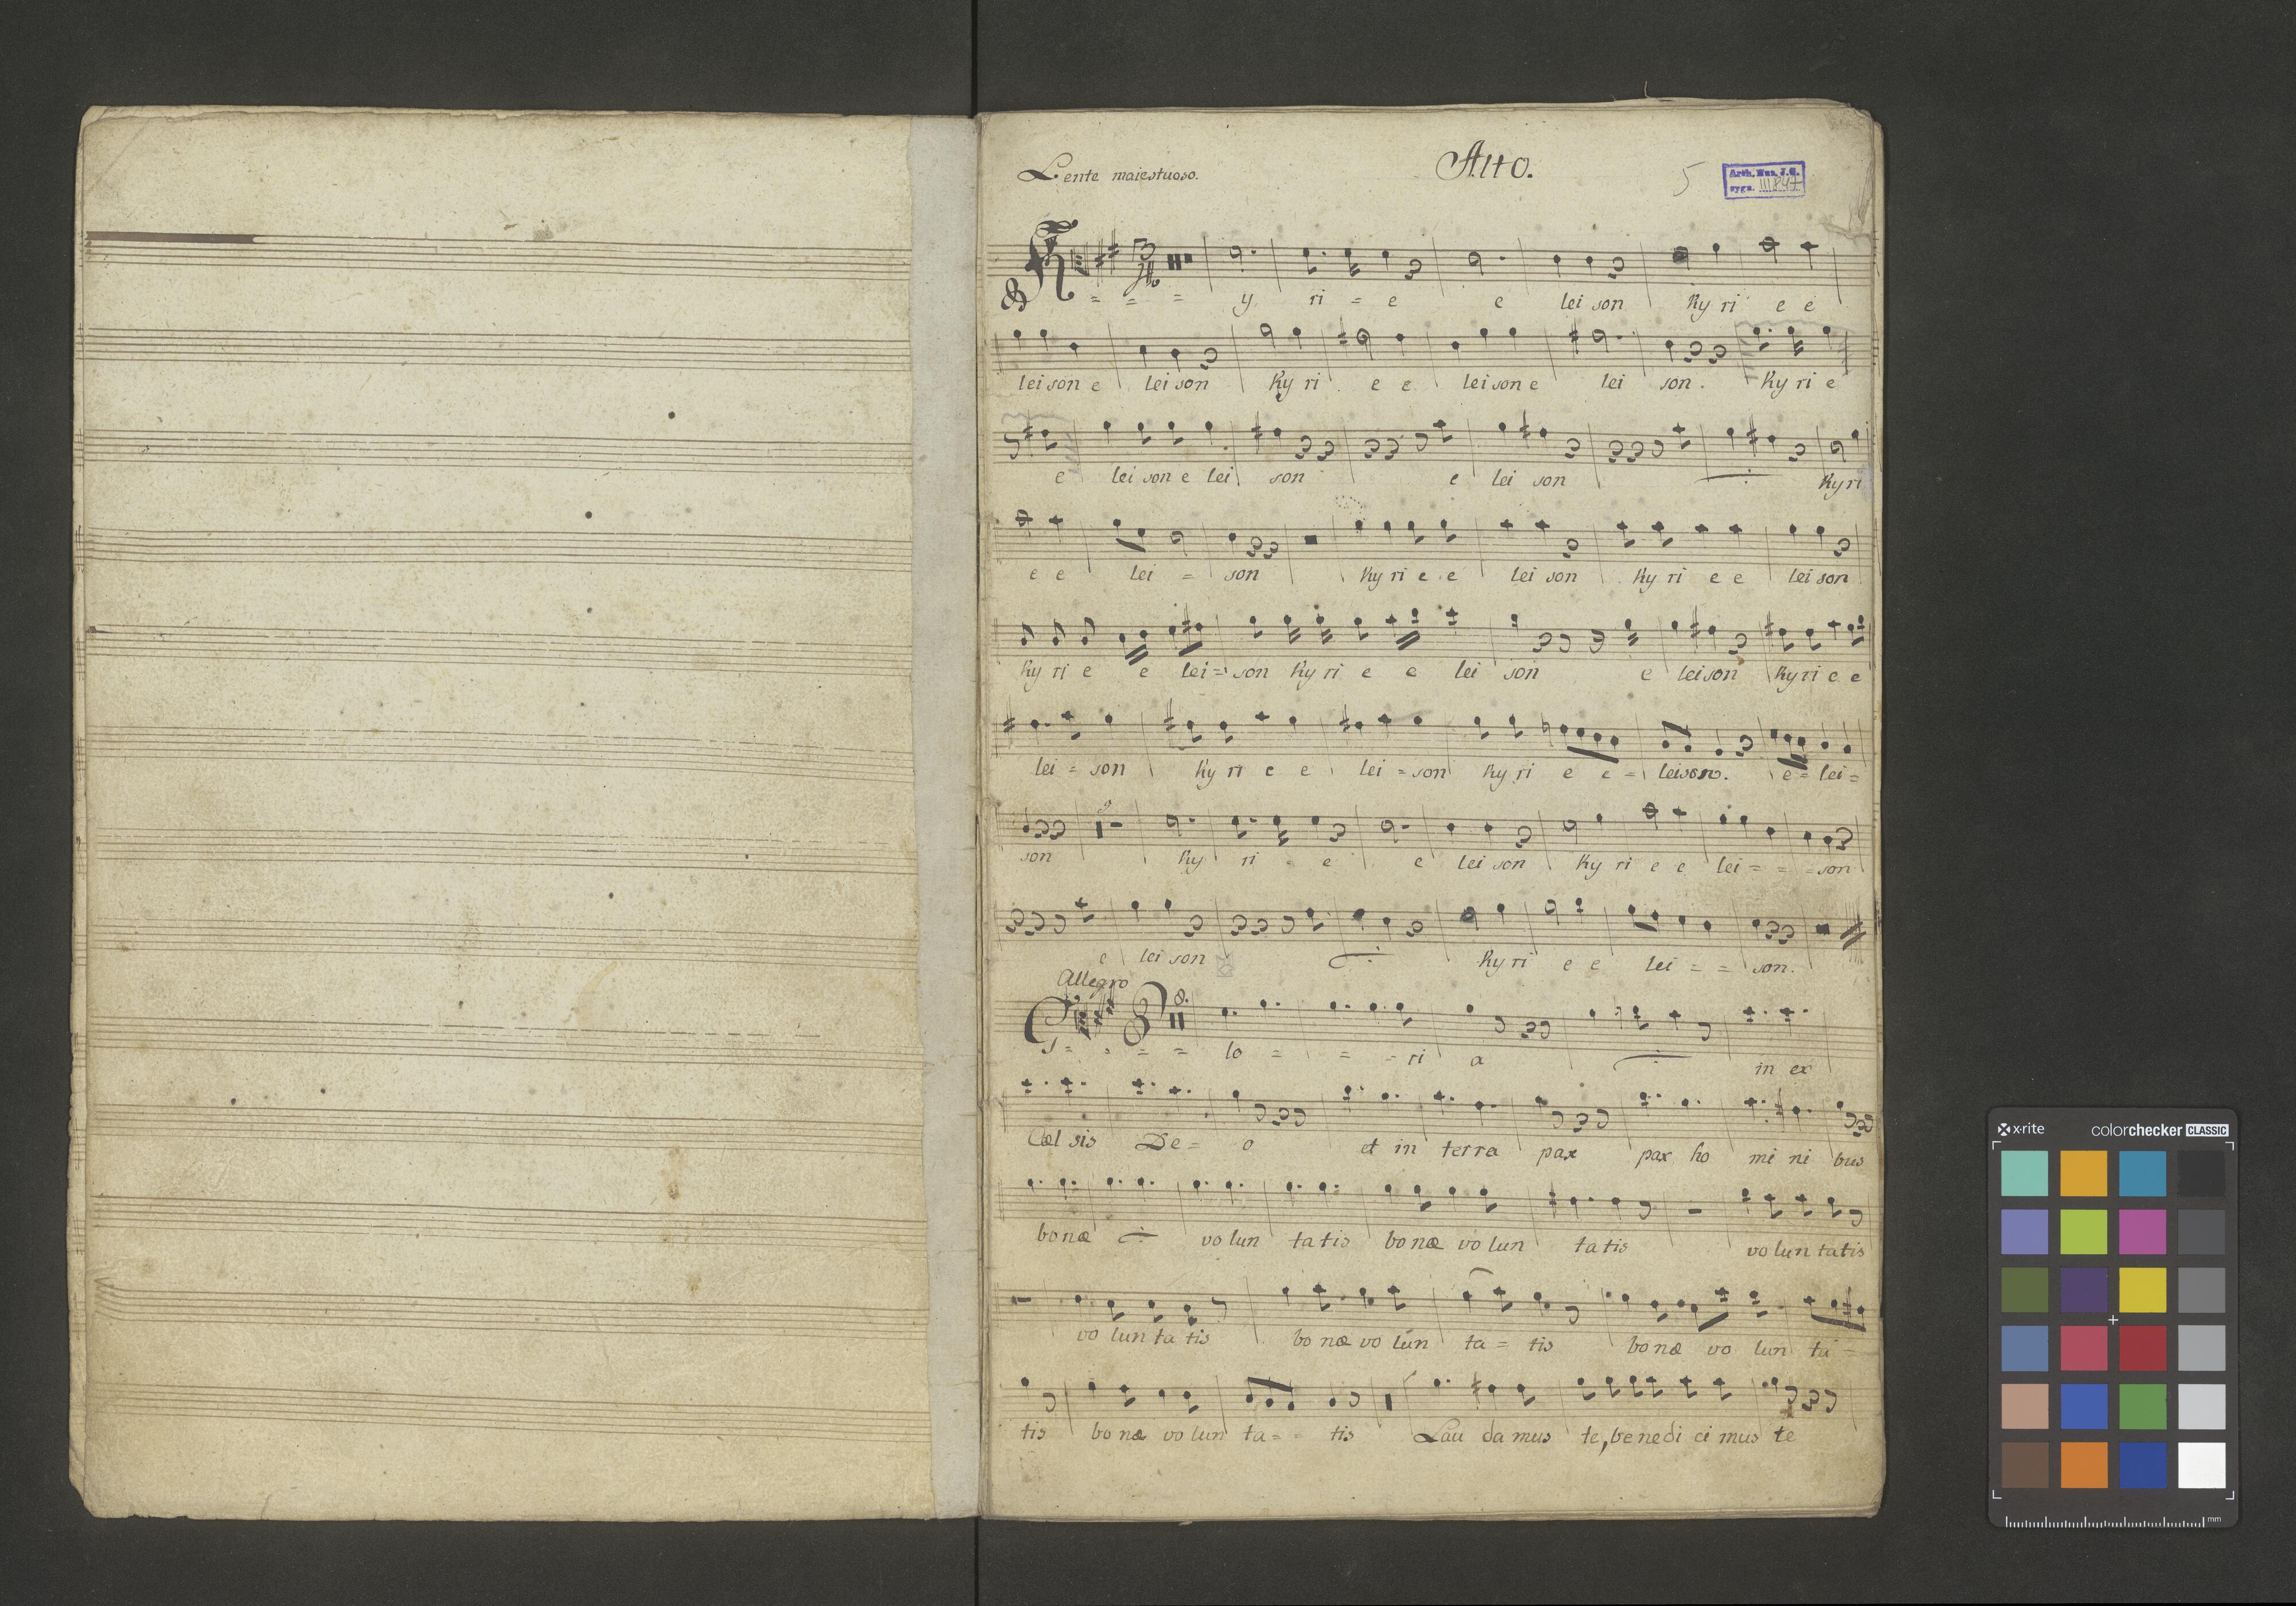 Lente maiestuoso.
Alto.
5
Arch. Muz. J. G.
sygn. III 847
K = = = y ri = e e lei son Ky ri e e
lei son e lei son Ky ri e e lei son e lei son. Ky ri e
e lei son e lei son e lei son Ky ri
e e lei = son Ky ri e e lei son Ky ri e e lei son
Ky ri e e lei = son Ky ri e e lei son e lei son Ky ri e e
lei = son Ky ri e e lei = son Ky ri e e = leison. e = lei =
son Ky ri = e e lei son Ky ri e e lei = = = son
e lei son Ky ri e e lei = = son.
Allegro
8.
G = = = = lo = = = ri a in ex
Cæl sis De = o et in terra pax pax ho mi ni bus
bonæ vo lun ta tis bo næ vo lun ta tis vo lun ta tis
vo lun ta tis bo næ vo lún ta = tis bo næ vo lun ta =
tis bo næ vo lun ta = = tis Lau da mus te, be nedi ci mus te
x·rite
colorchecker CLASSIC
mm